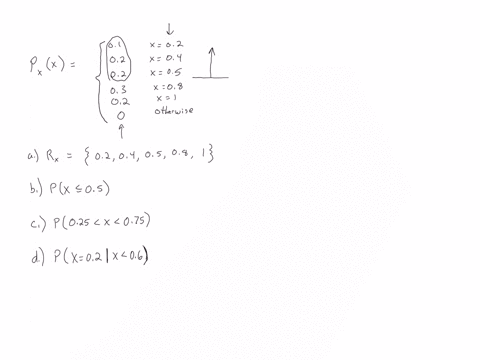 Pₓ(x) = { 0.1 x = 0.2
0.2 x = 0.4
0.2 x = 0.5
0.3 x = 0.8
0.2 x = 1
0 otherwise
a.) Rₓ = { 0.2, 0.4, 0.5, 0.8, 1 }
b.) P(X ≤ 0.5)
c.) P(0.25 < X < 0.75)
d.) P(X = 0.2 | X < 0.6)